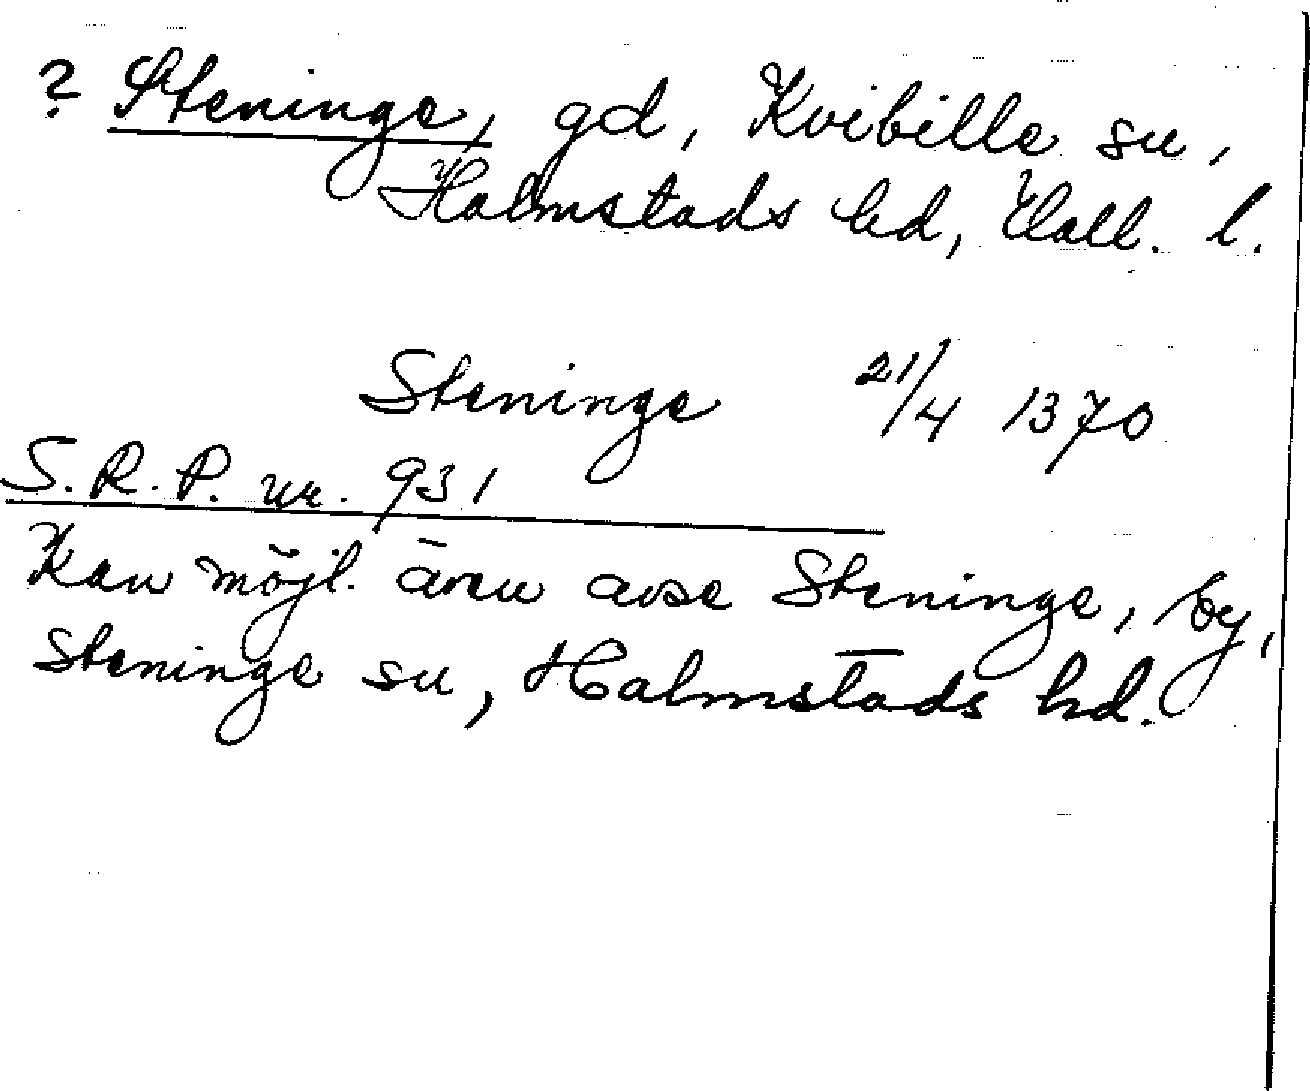 ? Steninge, gd, Kvibille sn,
Halmstads hd, Hall. l.
Steninge 21/4 1370
S.R.P. nr. 931
Kan möjl. även avse Steninge, by,
Steninge sn, Halmstads hd.